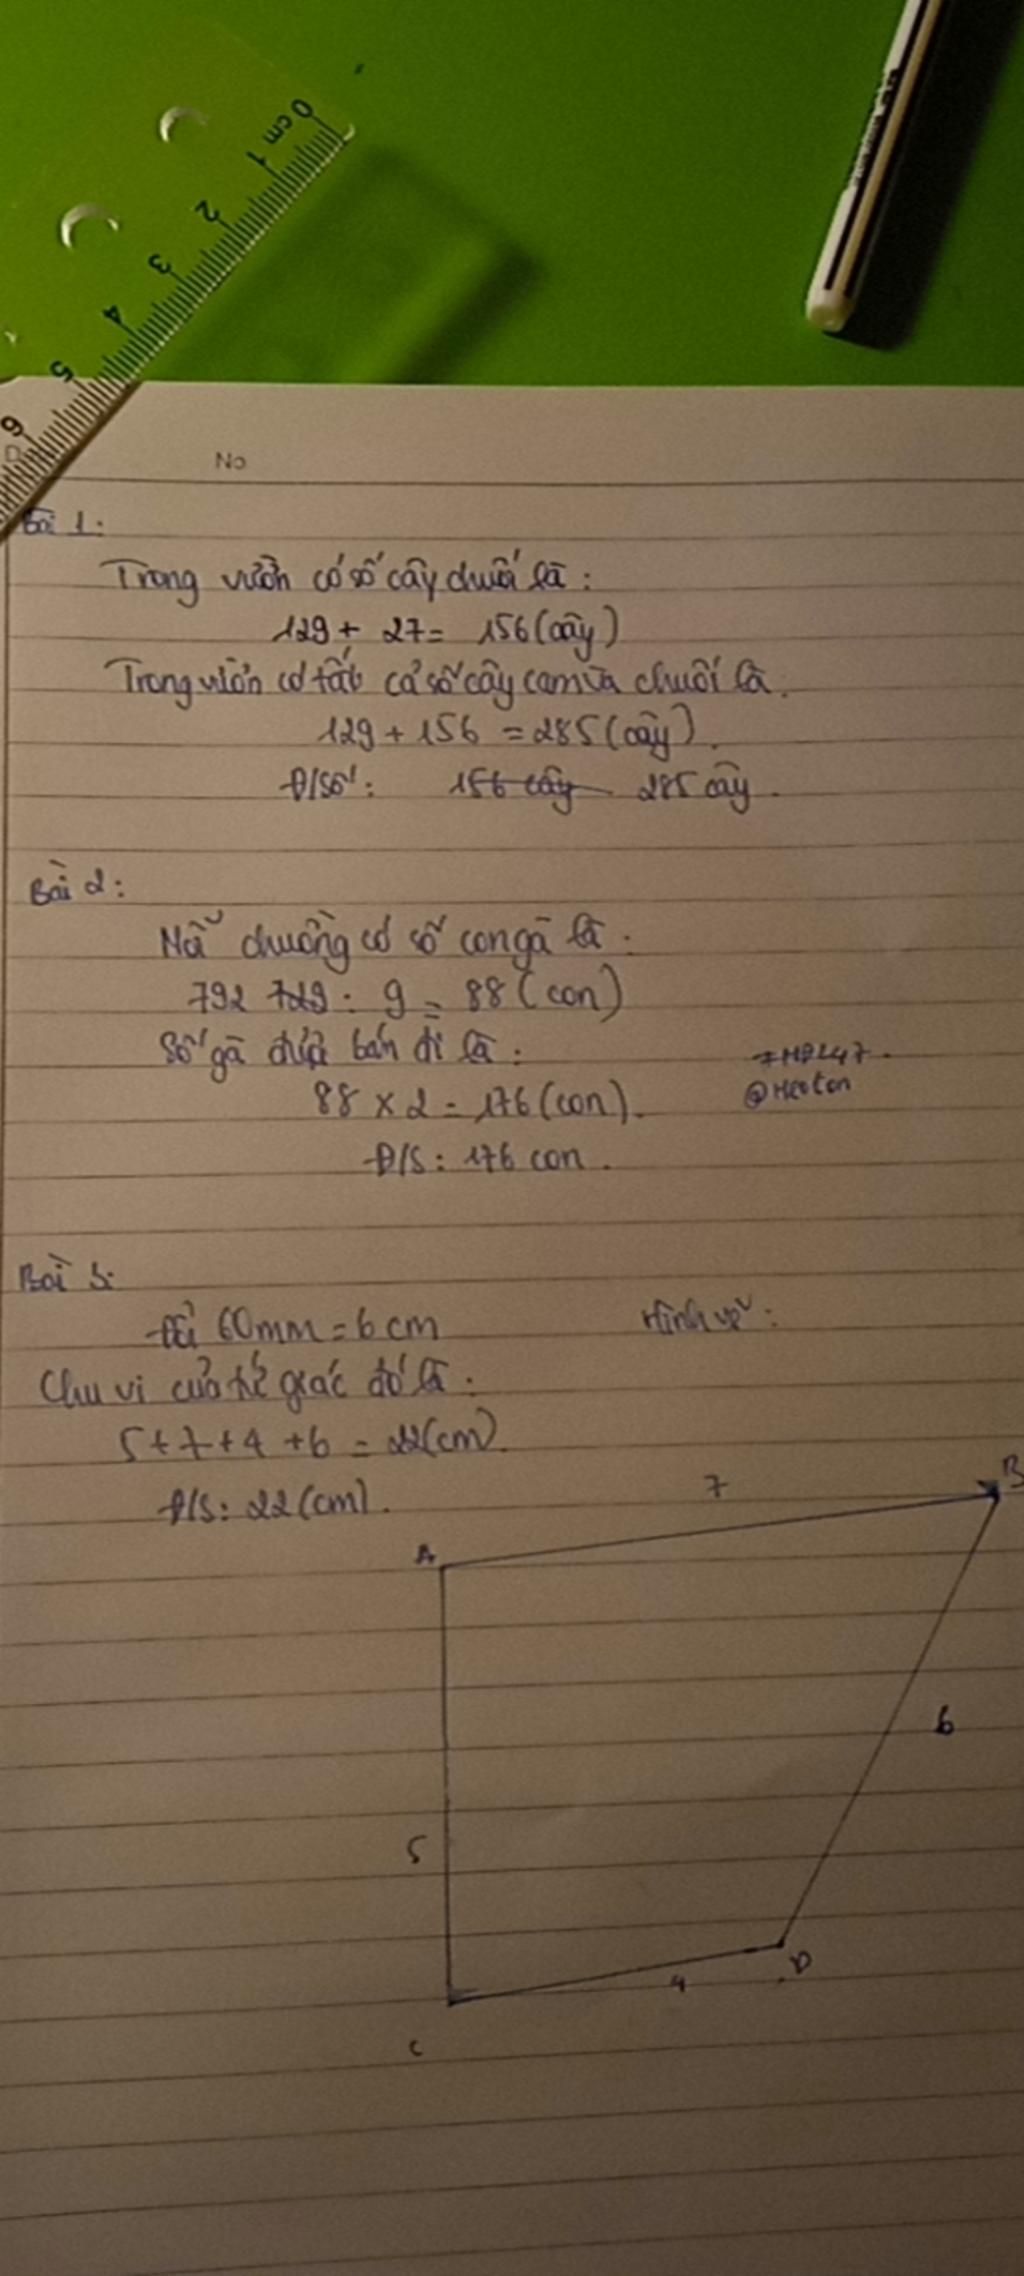 0cm 1 2 3 4 5 6
No
Bài 1:
Trong vườn có số cây chuối là:
129 + 27 = 156 (cây)
Trong vườn có tất cả số cây cam và chuối là.
129 + 156 = 285 (cây).
Đ/Số: 156 cây 285 cây.
Bài 2:
Mỗi chuồng có số con gà là:
792 729 : 9 = 88 (con)
Số gà được bán đi là:
88 x 2 = 176 (con).
Đ/S: 176 con.
@Heoton
Bài 3:
Đổi 60mm = 6 cm
Hình vẽ:
Chu vi của tứ giác đó là:
5 + 7 + 4 + 6 = 22 (cm).
Đ/S: 22 (cm).
7
B
A
6
5
4
D
C